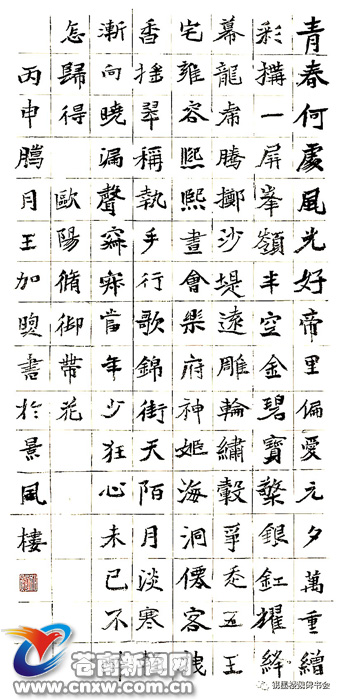 青春何處風光好帝里偏愛元夕萬重繒
彩搆一屏峯嶺半空金碧寶檠銀釭耀絳
幕龍虎騰擲沙堤遠雕輪繡轂爭走五王
宅雍容熙熙晝會樂府神姬海洞僊客拽
香搖翠稱執手行歌錦街天陌月淡寒
漸向曉漏聲寂寂當年少狂心未已不
怎歸得 歐陽脩御帶花
丙申臘月王加煦書於景風樓
苍南新闻网
www.cnxw.com.cn